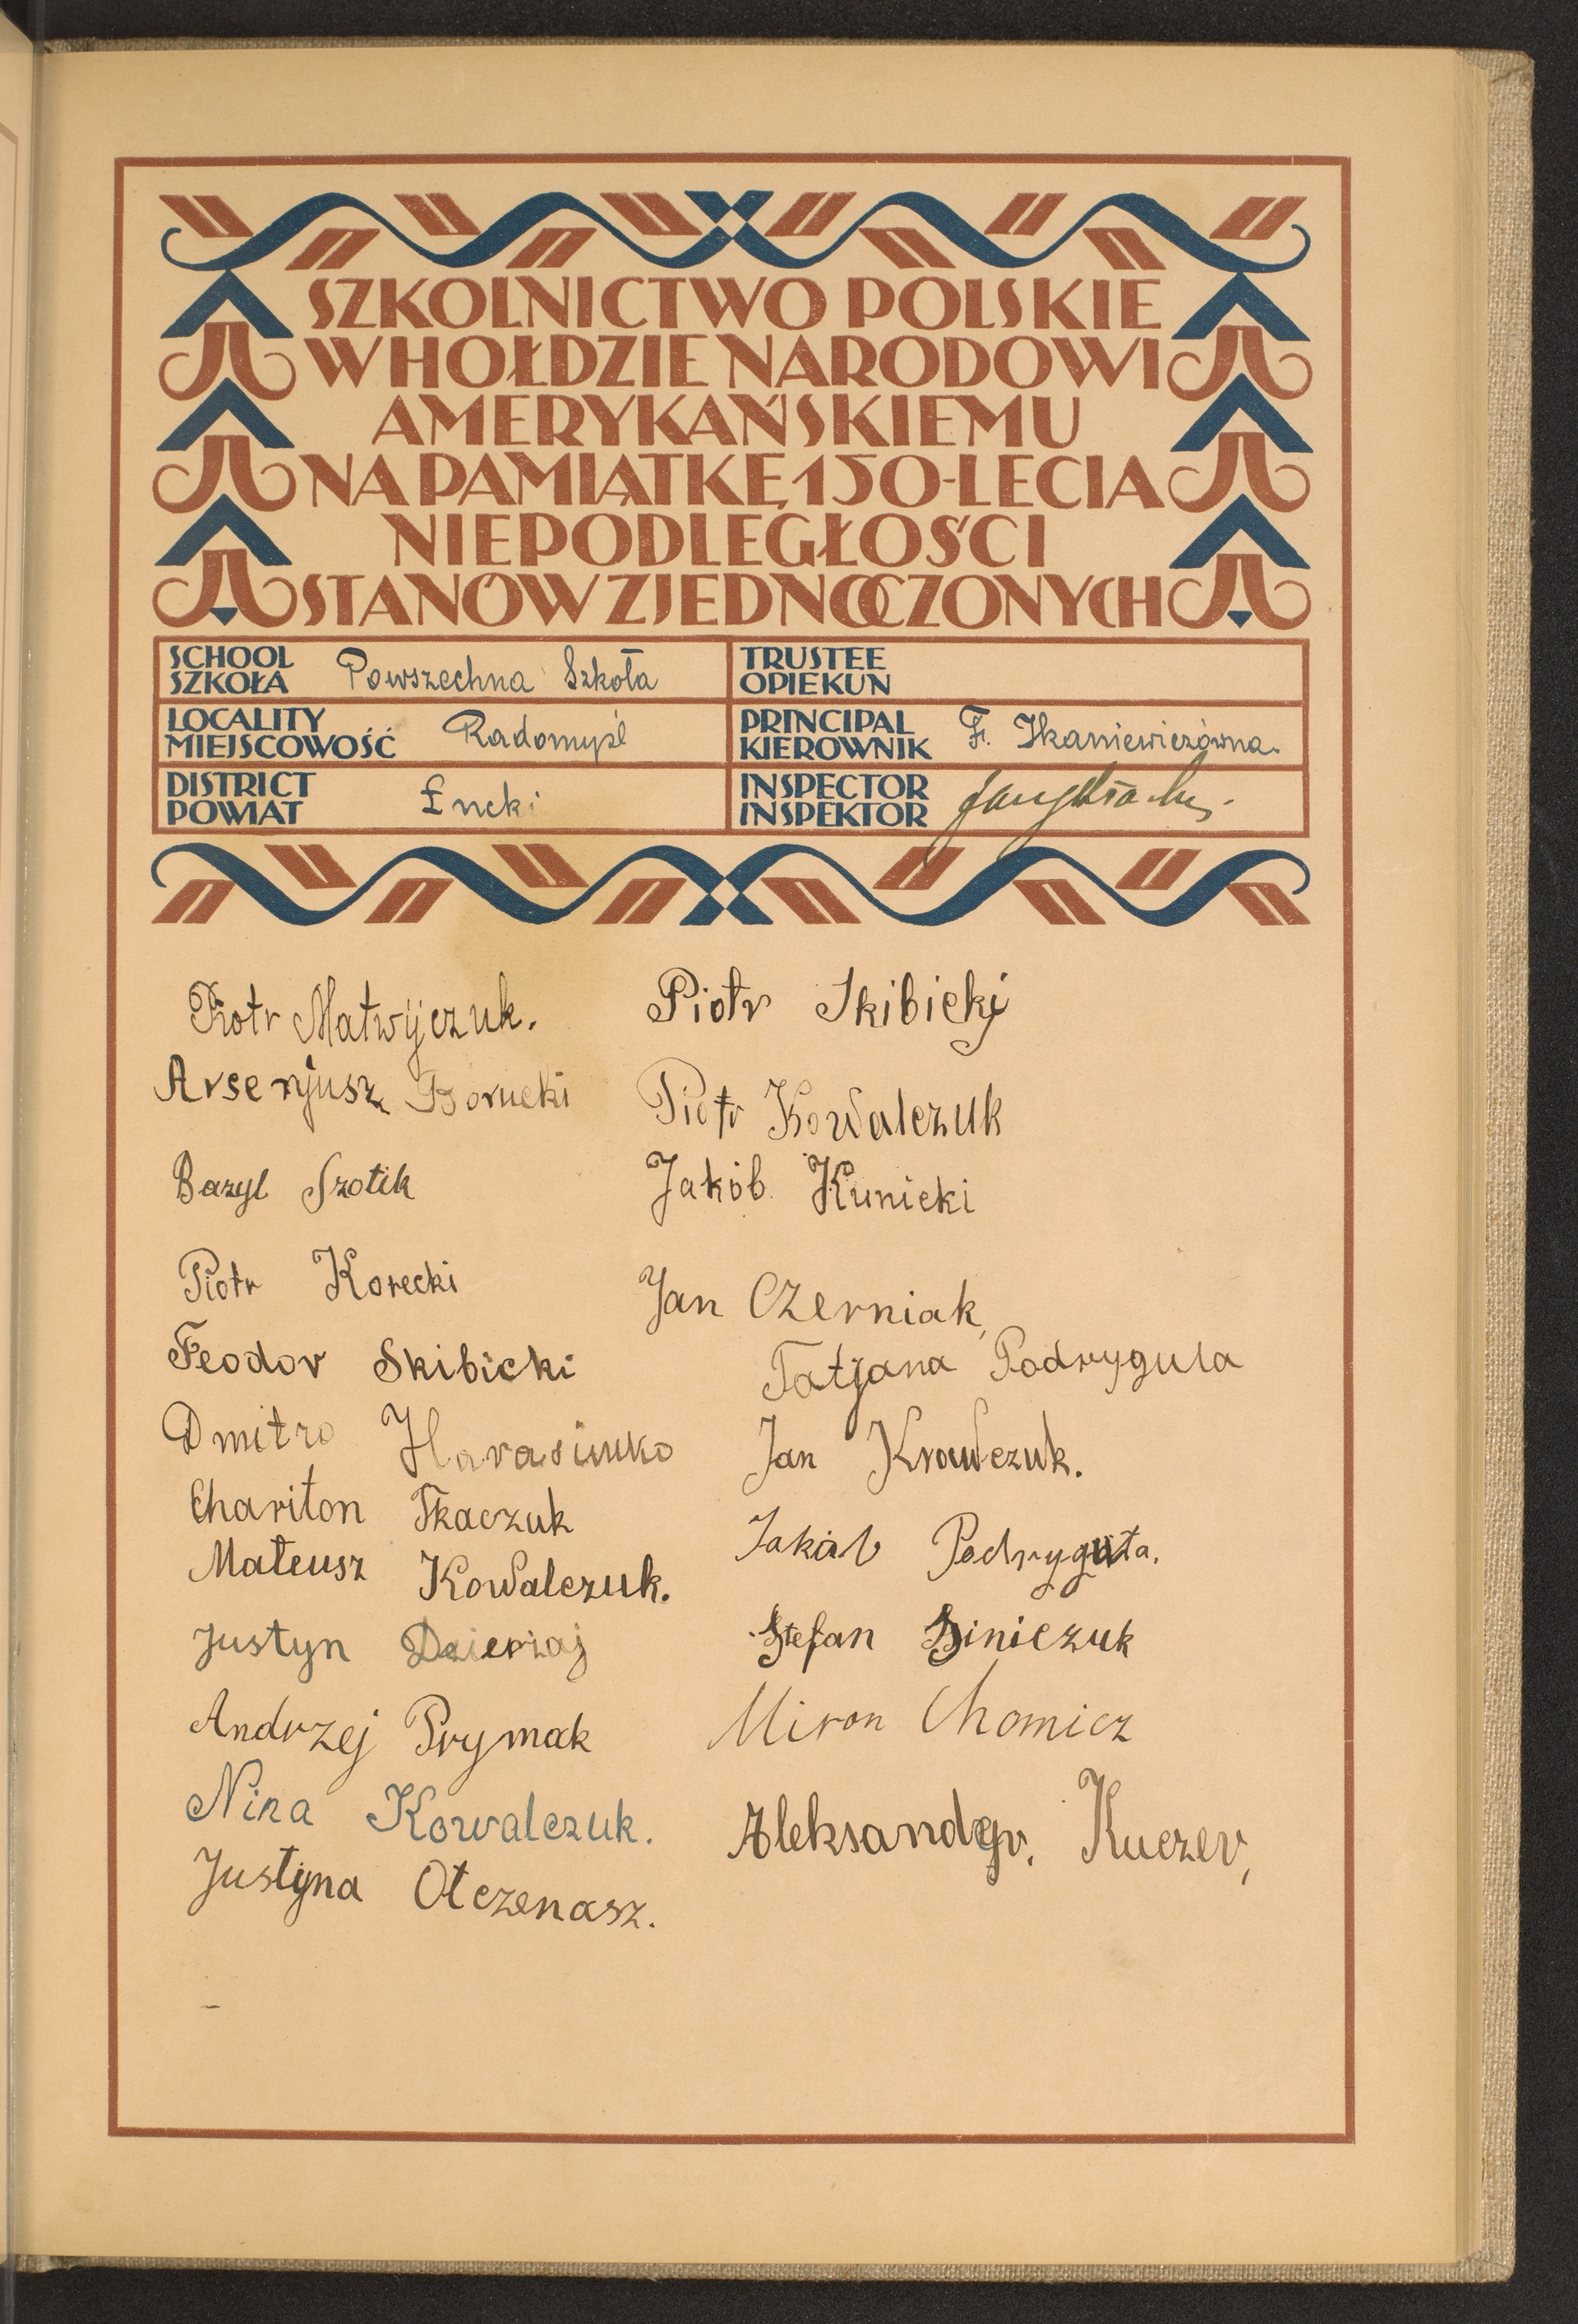 SZKOLNICTWO POLSKIE
W HOŁDZIE NARODOWI
AMERYKAŃSKIEMU
NA PAMIĄTKĘ 150-LECIA
NIEPODLEGŁOŚCI
STANÓW ZJEDNOCZONYCH
SCHOOL
SZKOŁA
Powszechna Szkoła
TRUSTEE
OPIEKUN
LOCALITY
MIEJSCOWOŚĆ
Radomyśl
PRINCIPAL
KIEROWNIK
F. Skaniewiczówna.
DISTRICT
POWIAT
Łucki
INSPECTOR
INSPEKTOR
Piotr Matwijczuk.
Arsenjusz Borucki
Bazyl Szotik
Piotr Korecki
Feodor Skibicki
Dmitro Harasimko
Chariton Tkaczuk
Mateusz Kowalczuk.
Justyn Dzierżaj
Andrzej Prymak
Nina Kowalczuk.
Justyna Otczenasz.
Piotr Skibickj
Piotr Kowalczuk
Jakób Kunicki
Jan Czerniak
Tatjana Podrygula
Jan Krawczuk.
Jakób Podryguła.
Stefan Diniczuk
Miron Chomicz
Aleksandr. Kuczer,